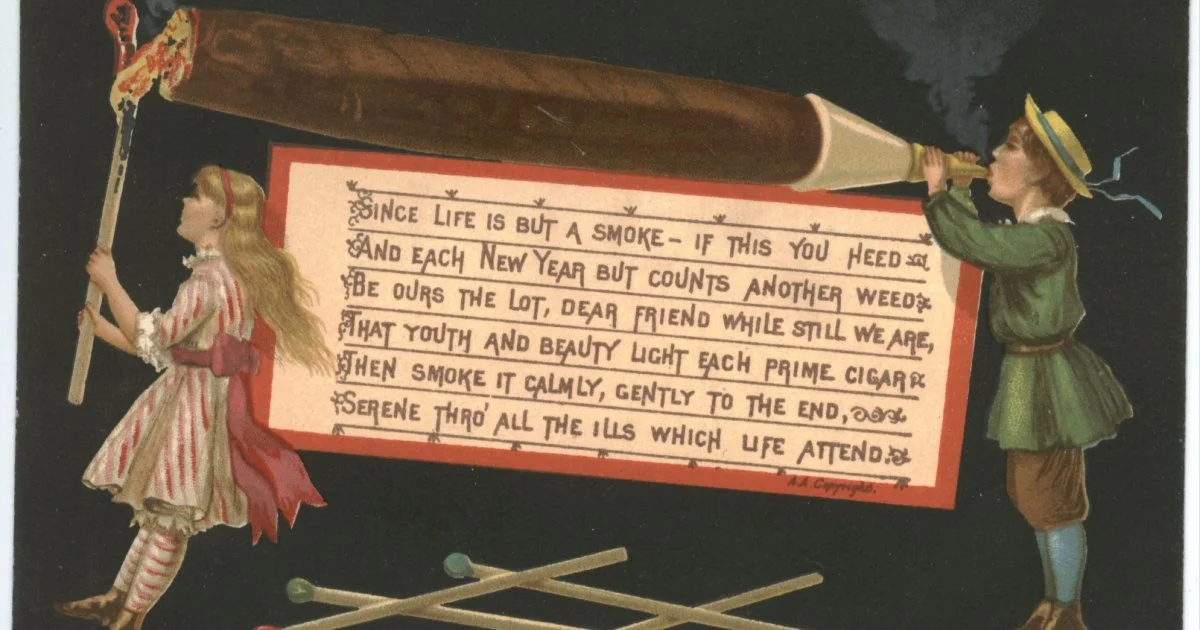 Since Life is but a smoke – if this you heed
And each New Year but counts another weed
Be ours the lot, dear friend while still we are,
That youth and beauty light each prime cigar
Then smoke it calmly, gently to the end,
Serene thro' all the ills which life attend.
A.A Copyright.